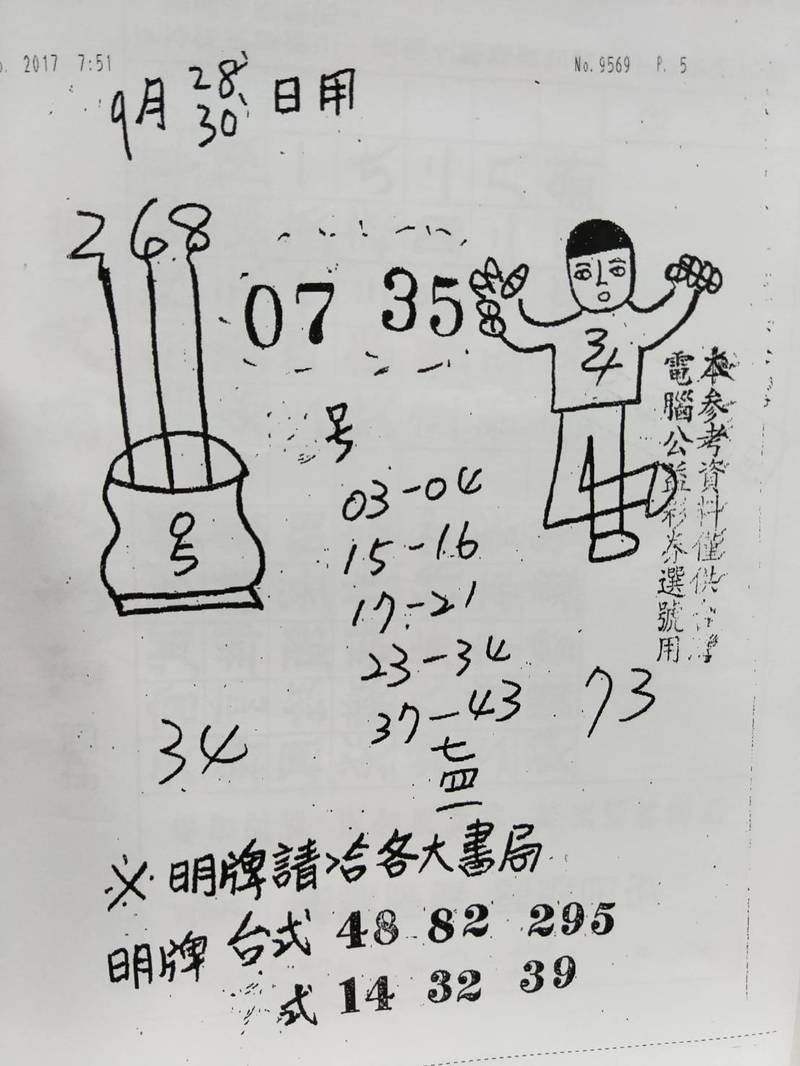 2017 7:51
No.9569 P. 5
9月 28、30 日用
2 6 8
07 35
34
05
号
03-04
15-16
17-21
23-34
37-43
七四一
34
73
本參考資料僅供台灣
電腦公益彩券選號用
※明牌請洽各大書局
明牌 台式 48 82 295
式 14 32 39